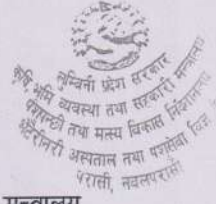 लुम्बिनी प्रदेश सरकार
कृषि, भूमि व्यवस्था तथा सहकारी मन्त्रालय
पशुपन्छी तथा मत्स्य विकास निर्देशनालय
भेटेरीनरी अस्पताल तथा पशुसेवा विज्ञ
परासी, नवलपरासी
मन्त्रालय